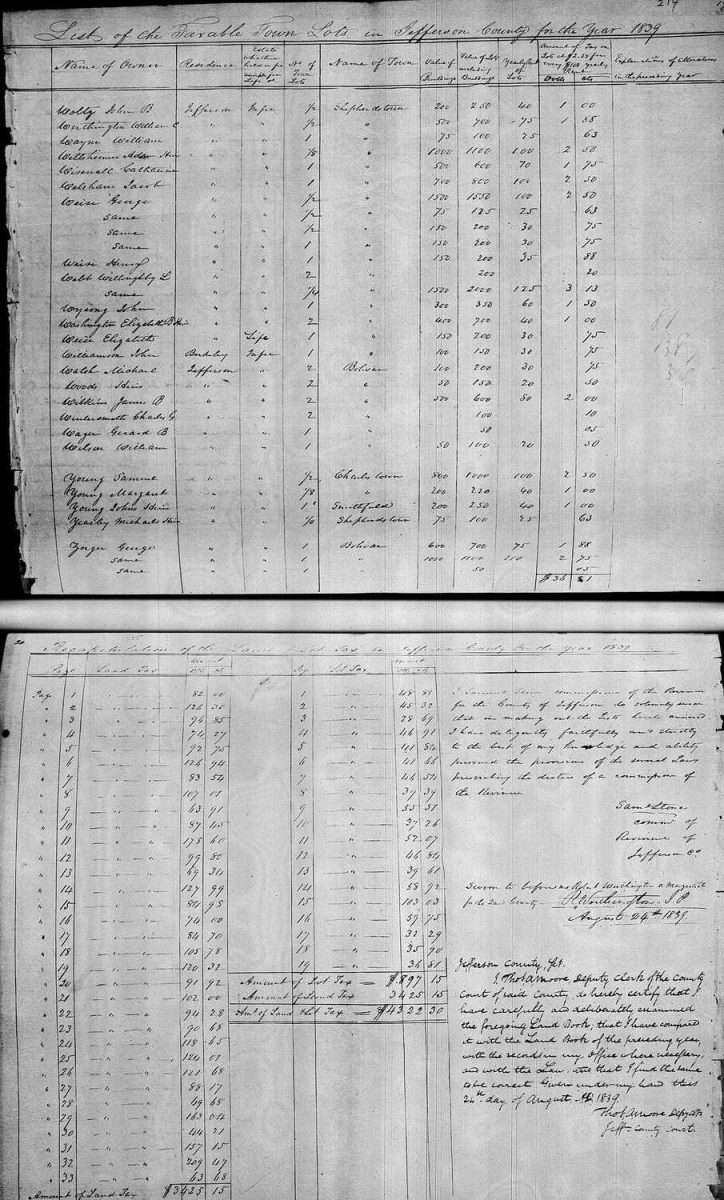 214
List of the Taxable Town Lots in Jefferson County for the Year 1839
Name of Owner Residence Estate No. of Town Lots Name of Town Value of Buildings Value of Lots including Buildings Yearly Rent of Lots Amount of Tax on Lots Explanations of alterations in the preceding year
Dolls cts
John B Jefferson 1/2 Shepherdstown 200 250 40 1 00
Worthington William C " " 1/2 " 500 700 75 1 88
Wayne William " " 1 " 75 100 25 63
" " 7/8 " 1000 1100 100 2 50
Catharine " " 1 " 500 600 70 1 75
Welshans Jacob " " 1 " 700 800 100 2 50
Weise George " " 1/2 " 1500 1550 100 2 50
same " " 1/2 " 75 125 25 63
same " " 1/2 " 150 200 30 75
same " " 1 " 150 200 30 75
Weise Henry " " 1 " 150 200 35 88
Webb Willoughby L " " 2 " 200 20
same " " 1/4 " 1500 2000 125 3 13
Wysong John " " 1 " 300 350 60 1 50
Washington Elizabeth B " " 2 " 400 700 40 1 00
Weise Elizabeth " Life 1 " 150 200 30 75
Williamson John Berkeley 1 " 100 150 30 75
Walsh Michael Jefferson " 2 Bolivar 100 200 30 75
Woods Heirs " " 2 " 50 150 20 50
Wilkins James B " " 2 " 500 600 80 2 00
Wintersmith Charles G " " 2 " 100 10
Wager Gerard B " " 1 " 50 05
Wilson William " " 1 " 50 100 20 50
Young Samuel " " 1/2 Charlestown 800 1000 100 2 50
Young Margaret " " 7/8 " 200 250 40 1 00
Young Johns Heirs " " 1 Smithfield 200 250 40 1 00
Yeasley Michaels Heirs " " Shepherdstown 75 100 25 63
George " " 1 Bolivar 600 700 75 1 88
same " " 1 " 1000 1100 2 75
same " " 1 50 05
$36 81
Recapitulation of the Land & Lot Tax in Jefferson County for the Year 1839
Page Land Tax Pg Lot Tax
Page 1 82 00 1 48 81
" 2 126 30 2 " 45 32
" 3 96 85 3 " 28 69
" 4 74 27 4 " 46 91
" 5 92 75 5 " 41 84
" 6 126 94 6 " 41 66
" 7 83 54 7 " 46 54
" 8 107 01 8 " 39 39
" 9 63 91 9 " 55 58
" 10 87 45 10 " 37 26
" 11 175 60 11 " 52 07
" 12 99 80 12 " 46 84
" 13 69 34 13 " 39 61
" 14 127 99 14 " 58 92
" 15 84 98 15 " 103 03
" 16 74 00 16 " 59 75
" 17 84 70 17 " 32 29
" 18 105 78 18 " 35 90
" 19 120 32 19 " 36 81
" 20 91 92 Amount of Lot Tax $897 15
" 21 102 00 Amount of Land Tax 3425 15
" 22 94 28 Amt of Land & Lot Tax $4322 30
" 23 90 68
" 24 118 65
" 25 124 01
" 26 121 68
" 27 88 17
" 28 49 68
" 29 163 04
" 30 44 21
" 31 157 15
" 32 209 47
" 33 63 68
Amount of Land Tax $3425 15
I Samuel Stone commissioner of the Revenue
for the County of Jefferson do solemnly swear
that in making out the Lists hereto annexed
I have diligently faithfully and strictly
to the best of my knowledge and ability
pursued the provisions of the several Laws
prescribing the duties of a commissioner of
the Revenue
Saml Stone
commr of
Revenue of
Jefferson Co
Sworn to before
Worthington J.P
August 24th 1839
Jefferson County, Sct.
I, Thos A Moore, Deputy Clerk of the County
Court of said County, do hereby certify that I
have carefully and deliberately examined
the foregoing Land Book; that I have compared
it with the Land Book of the preceding year,
with the records in my office where necessary,
and with the Law and that I find the same
to be correct. Given under my hand this
24th day of August AD 1839.
Thos A Moore Dep. Clk
Jeff. County Court.